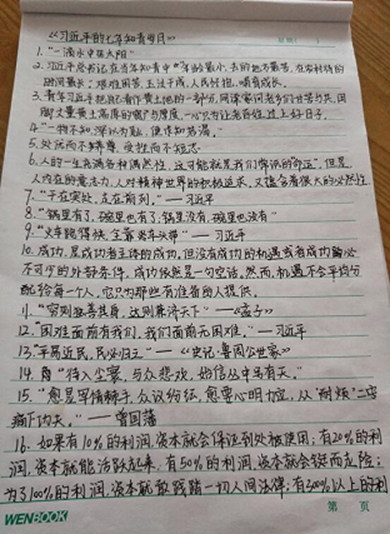 《习近平的七年知青岁月》
1. "一滴水中在太阳"
2. 习近平总书记在当年知青中"年龄最小,去的地方最苦,在农村待的
时间最长;艰难困苦,玉汝于成,人民
3. 青年习近平把自己看作黄土地的一部分,同梁家河老乡们甘苦与共,用
脚丈量黄土高原的宽广与厚度,一心只为让老百姓过上好日子。
4. "一物不知,深以为耻,便求知若渴。"
5. 处优而不养尊,受挫而不短志
6. 人的一生充满各种偶然性,这可能就是我们常说的命运",但是,
人内在的意志力,人对精神世界的积极追求,又蕴含着很大的必然性
7. "干在实处,走在前列。" —— 习近平
8. "锅里有了,碗里也有了,锅里没有,碗里也没有"
9. "火车跑得快,全靠火车头带" —— 习近平
10. 成功,是成功者主体的成功,但没有成功的机遇或者成功
不可少的外部条件,成功依然是一句空话。然而,机遇不会平均分
配给每一个人,它只为那些有准备的人提供。
11. "穷则独善其身,达则兼济天下" ——《孟子》
12. "困难面前有我们,我们面前无困难。" —— 习近平
13. "平易近民,民必归之" ——《史记·鲁周公世家》
14. "待入尘寰,与众悲欢,始信丛中另有天。"
15. "愈是军情棘手,众议纷纭,愈要心明力定,从"耐烦"二字
痛下功夫。" —— 曾国藩
16. 如果有10%的利润,资本就会保证到处被使用;有20%的利
润,资本就能活跃起来;有50%的利润,资本就会铤而走险;
为了100%的利润,资本就敢践踏一切人间法律;有300%以上的利
WENBOOK
第 页